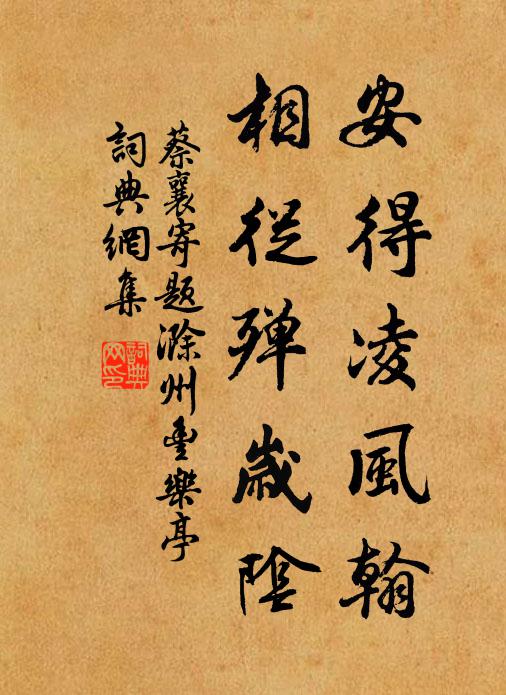 安得凌風翰
相從殫歲陰
蔡襄寄題滁州豊樂亭
詞典網集
詞典網印